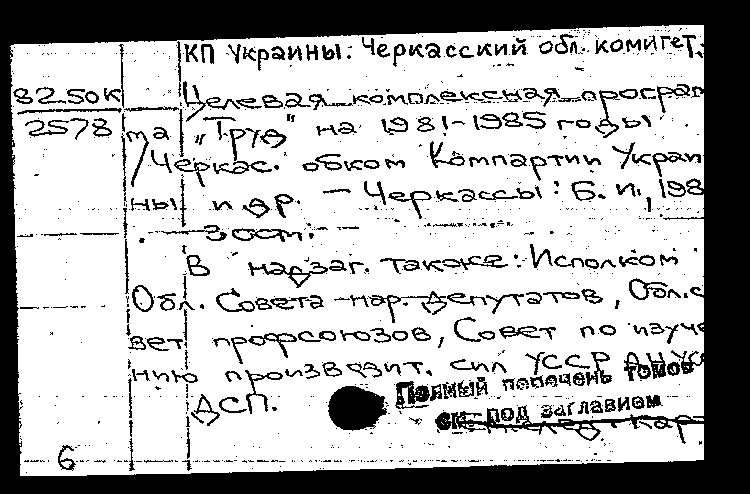 КП Украины: Черкасский обл. комитет.
82 50К
2578
Целевая комплексная програм
ма „Труд" на 1981-1985 годы
/Черкас. обком Компартии Украи
ны и др. — Черкассы: Б. и., 198
. —
В надзаг. также: Исполком
Обл. Совета нар. депутатов, Обл. с
вет профсоюзов, Совет по изуче
нию производит. сил УССР АН УС
ДСП.
Полный перечень томов
см. под заглавием
6